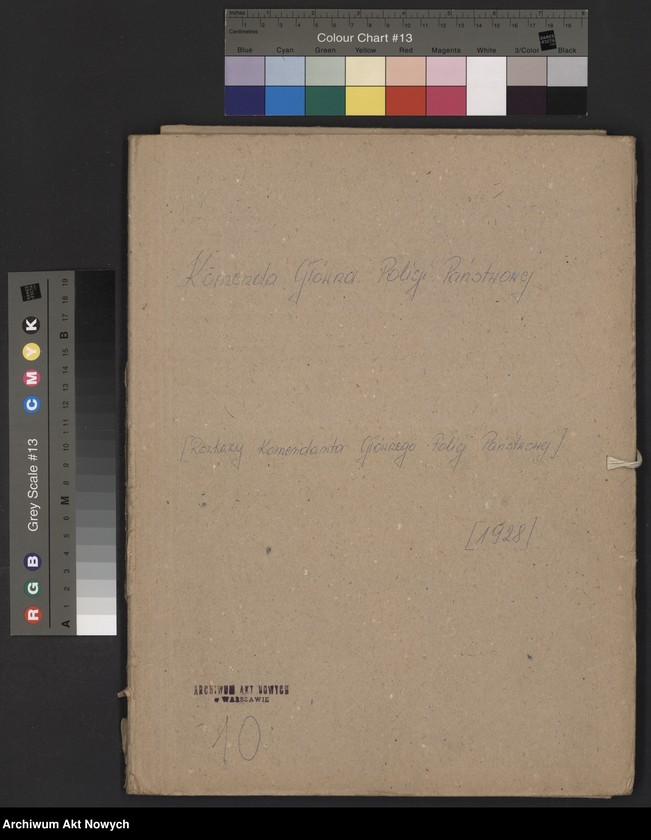 Colour Chart #13
Blue Cyan Green Yellow Red Magenta White 3/Color Black
Komenda Główna Policji Państwowej
[Rozkazy Komendanta Głównego Policji Państwowej]
[1928]
ARCHIWUM AKT NOWYCH
w WARSZAWIE
10
Grey Scale #13
R G B C M Y K
A 1 2 3 4 5 6 M 8 9 10 11 12 13 14 15 B 17 18 19
Archiwum Akt Nowych